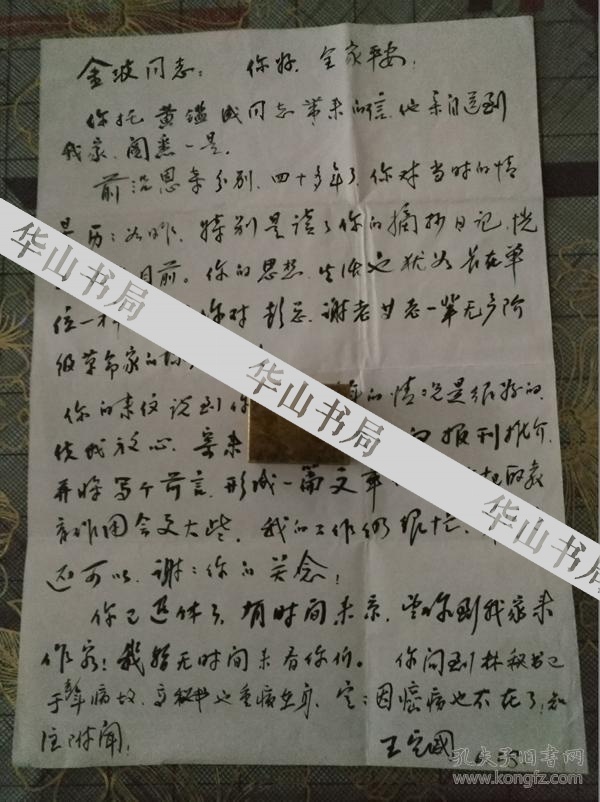 金波同志: 你好,全家平安!
你托黄 成同志带来的信,他亲自送到
我家,阅悉一是。
前 思 分别,四十多年了,你对当时的情
历: 昨,特别是读了你的摘抄日记,恍
目前。你的思想,生活也犹如长在单
位一样 你对彭总,谢老 老一辈无产阶
级革命家的
你的来信说到你 的情况是很好的,
使我放心。寄来 向报刊推介,
并将写个前言,形成一篇文章 的教
育作用会更大些。我的工作仍很忙,
还可以,谢:你的关念!
你已退休了,有时间来京,望你到我家来
作客!我暂无时间来看你们。 你问到林秘书已
于 病故,高秘书也重病在身,定:因癌病也不在了,知
注附闻!
王定国
华山书局
华山书局
华山书局
孔夫子旧书网
www.kongfz.com